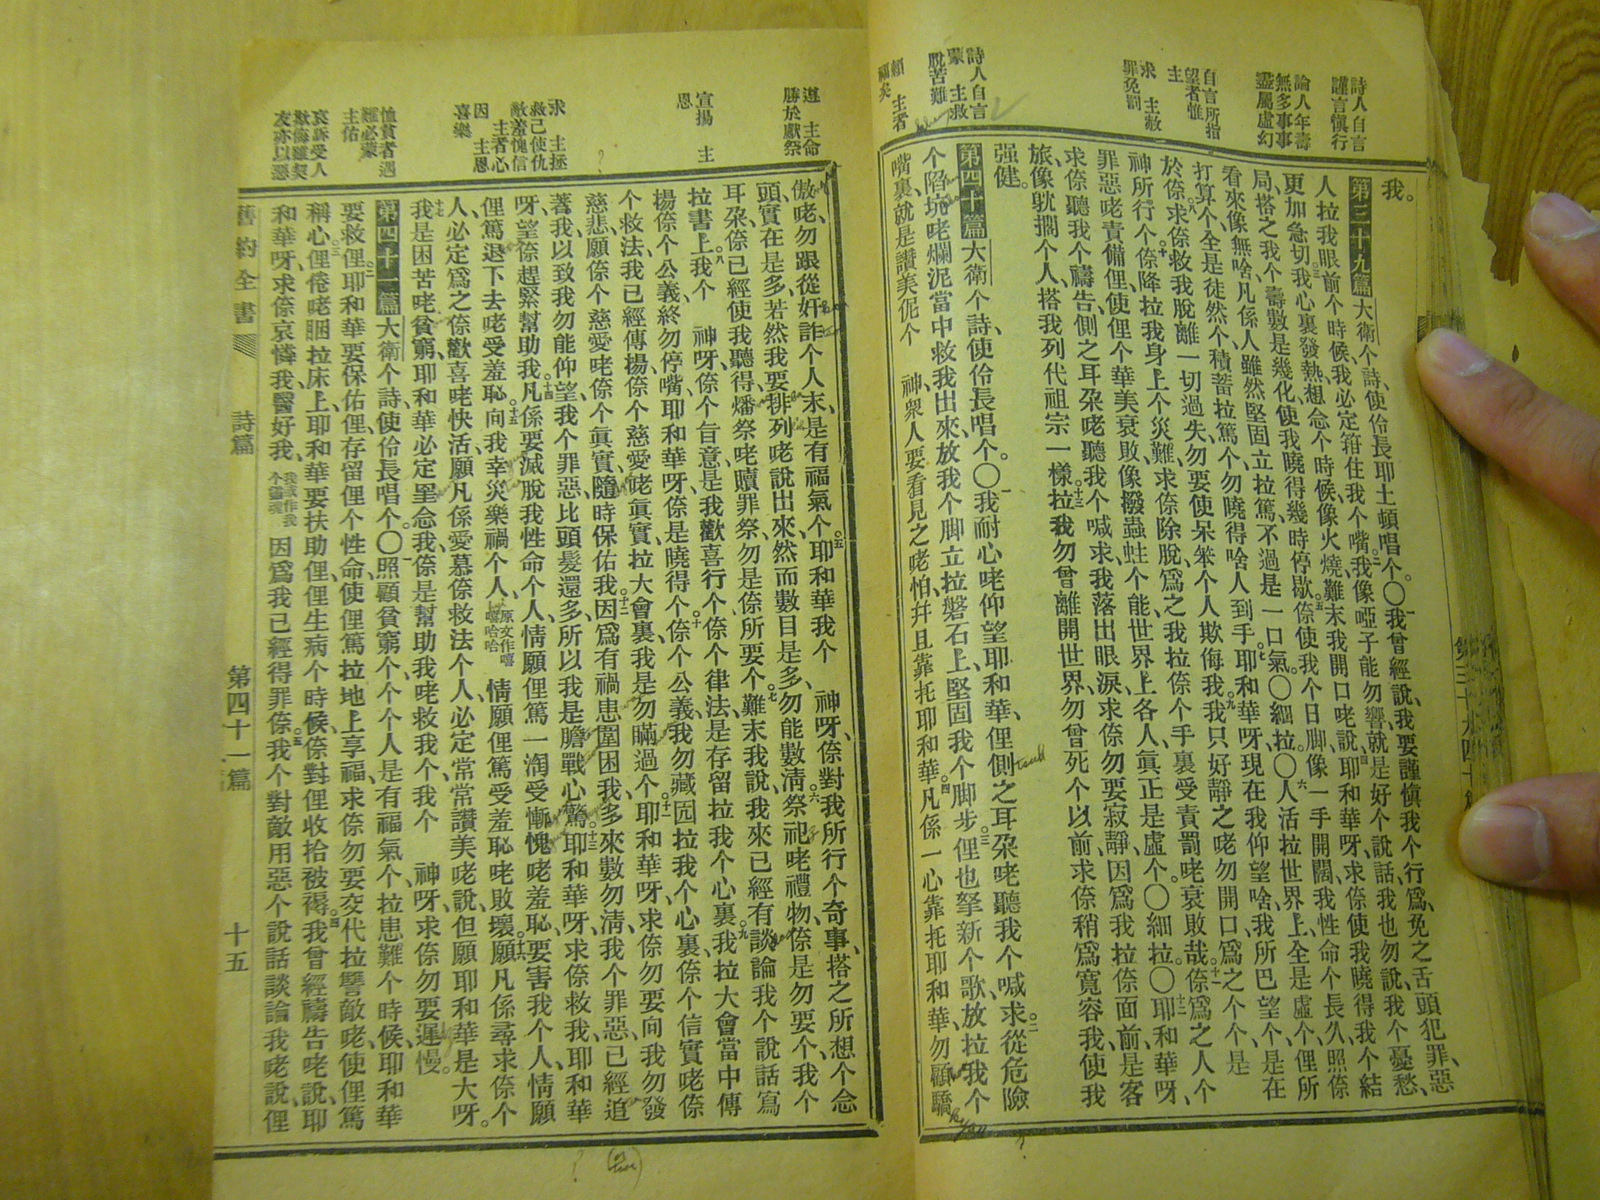 詩人自言
謹言愼行
論人年壽
無多事事
盡屬虛幻
自言所指
望者惟
主
求 主赦
罪免罰
詩人自言
蒙 主救
脫苦難
賴 主者
福矣
我。
第三十九篇 大衛个詩、使伶長耶土頓唱个。〇我曾經說、我要謹愼我个行爲、免之舌頭犯罪、惡
人拉我眼前个時候、我必定箝住我个嘴。二我像啞子能勿響、就是好个說話我也勿說、我个憂愁、
更加急切。三我心裏發熱、想念个時候、像火燒、難末我開口咾說、四耶和華呀、求倷使我曉得我个結
局、搭之我个壽數是幾化、使我曉得幾時停歇。五倷使我个日脚、像一手開闊、我性命个長久、照倷
看來像無啥、凡係人雖然堅固立拉、篤不過是一口氣。〇細拉。〇六人活拉世界上、全是虛个、俚所
打算个、全是徒然个、積蓄拉篤个、勿曉得啥人到手。七耶和華呀、現在我仰望啥、我所巴望个、是在
於倷。八求倷救我脫離一切過失、勿要使呆笨个人欺侮我。九我只好靜之咾勿開口、爲之个个是
神所行个。十倷降拉我身上个災難、求倷除脫、爲之我拉倷个手裏受責罰咾衰敗哉。十一倷爲之人个
罪惡咾責備俚、使俚个華美衰敗、像撥蟲蛀个能、世界上各人眞正是虛个。〇細拉。〇十二耶和華呀、
求倷聽我个禱告、側之耳朶咾聽我个喊求、我落出眼淚、求倷勿要寂靜、因爲我拉倷面前是客
旅、像躭擱个人、搭我列代祖宗一樣拉。十三我勿曾離開世界、勿曾死个以前、求倷稍爲寬容我、使我
强健。
第四十篇 大衛个詩、使伶長唱个。〇一我耐心咾仰望耶和華、俚側之耳朶咾聽我个喊求。二從危險
个陷坑咾爛泥當中救我出來、放我个脚立拉磐石上、堅固我个脚步。三俚也拏新个歌、放拉我个
嘴裏、就是讚美伲个 神、衆人要看見之咾怕、幷且靠托耶和華。四凡係一心靠托耶和華、勿顧驕
遵 主命
勝於獻祭
宣揚 主
恩
求 主拯
救己使仇
敵羞愧信
主者心
因 主恩
喜樂
恤貧者遇
難必蒙
主佑
哀訴受人
欺侮雖契
友亦以惡
傲咾、勿跟從奸詐个人末、是有福氣个。五耶和華我个 神呀、倷對我所行个奇事、搭之所想个念
頭、實在是多、若然我要排列咾說出來、然而數目是多、勿能數清。六祭祀咾禮物、倷是勿要个、我个
耳朶、倷已經使我聽得、燔祭咾贖罪祭、勿是倷所要个。七難末我說、我來已經有談論我个說話寫
拉書上。八我个 神呀、倷个旨意、是我歡喜行个、倷个律法、是存留拉我个心裏。九我拉大會當中傳
揚倷个公義、終勿停嘴、耶和華呀、倷是曉得个。十倷个公義、我勿藏囥拉我个心裏、倷个信實咾倷
个救法、我已經傳揚、倷个慈愛咾眞實、拉大會裏、我是勿瞞過个。十一耶和華呀、求倷勿要向我勿發
慈悲、願倷个慈愛咾倷个眞實、隨時保佑我。十二因爲有禍患圍困我、多來數勿清、我个罪惡已經追
著我、以致我勿能仰望、我个罪惡比頭髮還多、所以我是膽戰心驚。十三耶和華呀、求倷救我、耶和華
呀、望倷趕緊幫助我。十四凡係要滅脫我性命个人、情願俚篤一淘受慚愧咾羞恥、要害我个人、情願
俚篤退下去咾受羞恥。十五向我幸災樂禍个人、原文作嘻嘻哈哈 情願俚篤受羞恥咾敗壞。十六願凡係尋求倷个
人、必定爲之倷歡喜咾快活、願凡係愛慕倷救法个人、必定常常讚美咾說、但願耶和華是大呀。
十七我是困苦咾貧窮、耶和華必定罣念我、倷是幫助我咾救我个、我个 神呀、求倷勿要遲慢。
第四十一篇 大衛个詩、使伶長唱个。〇一照顧貧窮个个个人、是有福氣个、拉患難个時候、耶和華
要救俚。二耶和華要保佑俚、存留俚个性命、使俚篤拉地上享福、求倷勿要交代拉讐敵咾使俚篤
稱心。三俚倦咾睏拉床上、耶和華要扶助俚、俚生病个時候、倷對俚收拾被褥。四我曾經禱告咾說、耶
和華呀、求倷哀憐我、醫好我、我或作我个靈魂 因爲我已經得罪倷。五我个對敵用惡个說話談論我咾說、俚
舊約全書 詩篇 第四十一篇 十五